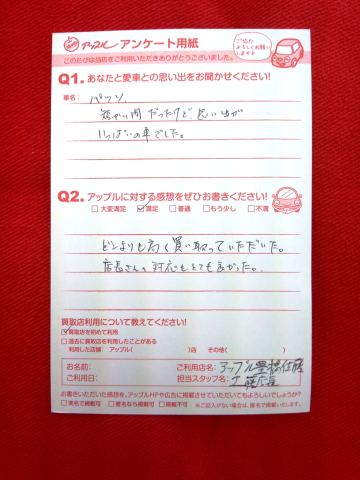 アップル アンケート用紙
ご協力
よろしくお願い
します♪
このたびは当店をご利用いただきありがとうございました。
Q1. あなたと愛車との思い出をお聞かせください!
車名: パッソ
短かい間だったけど、思い出が
いっぱいの車でした。
Q2. アップルに対する感想をぜひお書きください!
□大変満足 ☑満足 □普通 □もう少し □不満
どこよりも高く買い取っていただいた。
店長さんの対応もとても良かった。
買取店利用について教えてください!
☑買取店を初めて利用
□過去に買取店を利用したことがある
利用した店舗: アップル( )店 その他( )
お名前: ご利用店名: アップル豊橋佐藤店
ご利用日: 担当スタッフ名: 工藤店長
お書きいただいた感想を、アップルHPや広告に掲載させていただいてもよろしいでしょうか?
□実名で掲載可 □匿名なら掲載可 □掲載不可 ※ご記入がない場合は、匿名で掲載いたします。